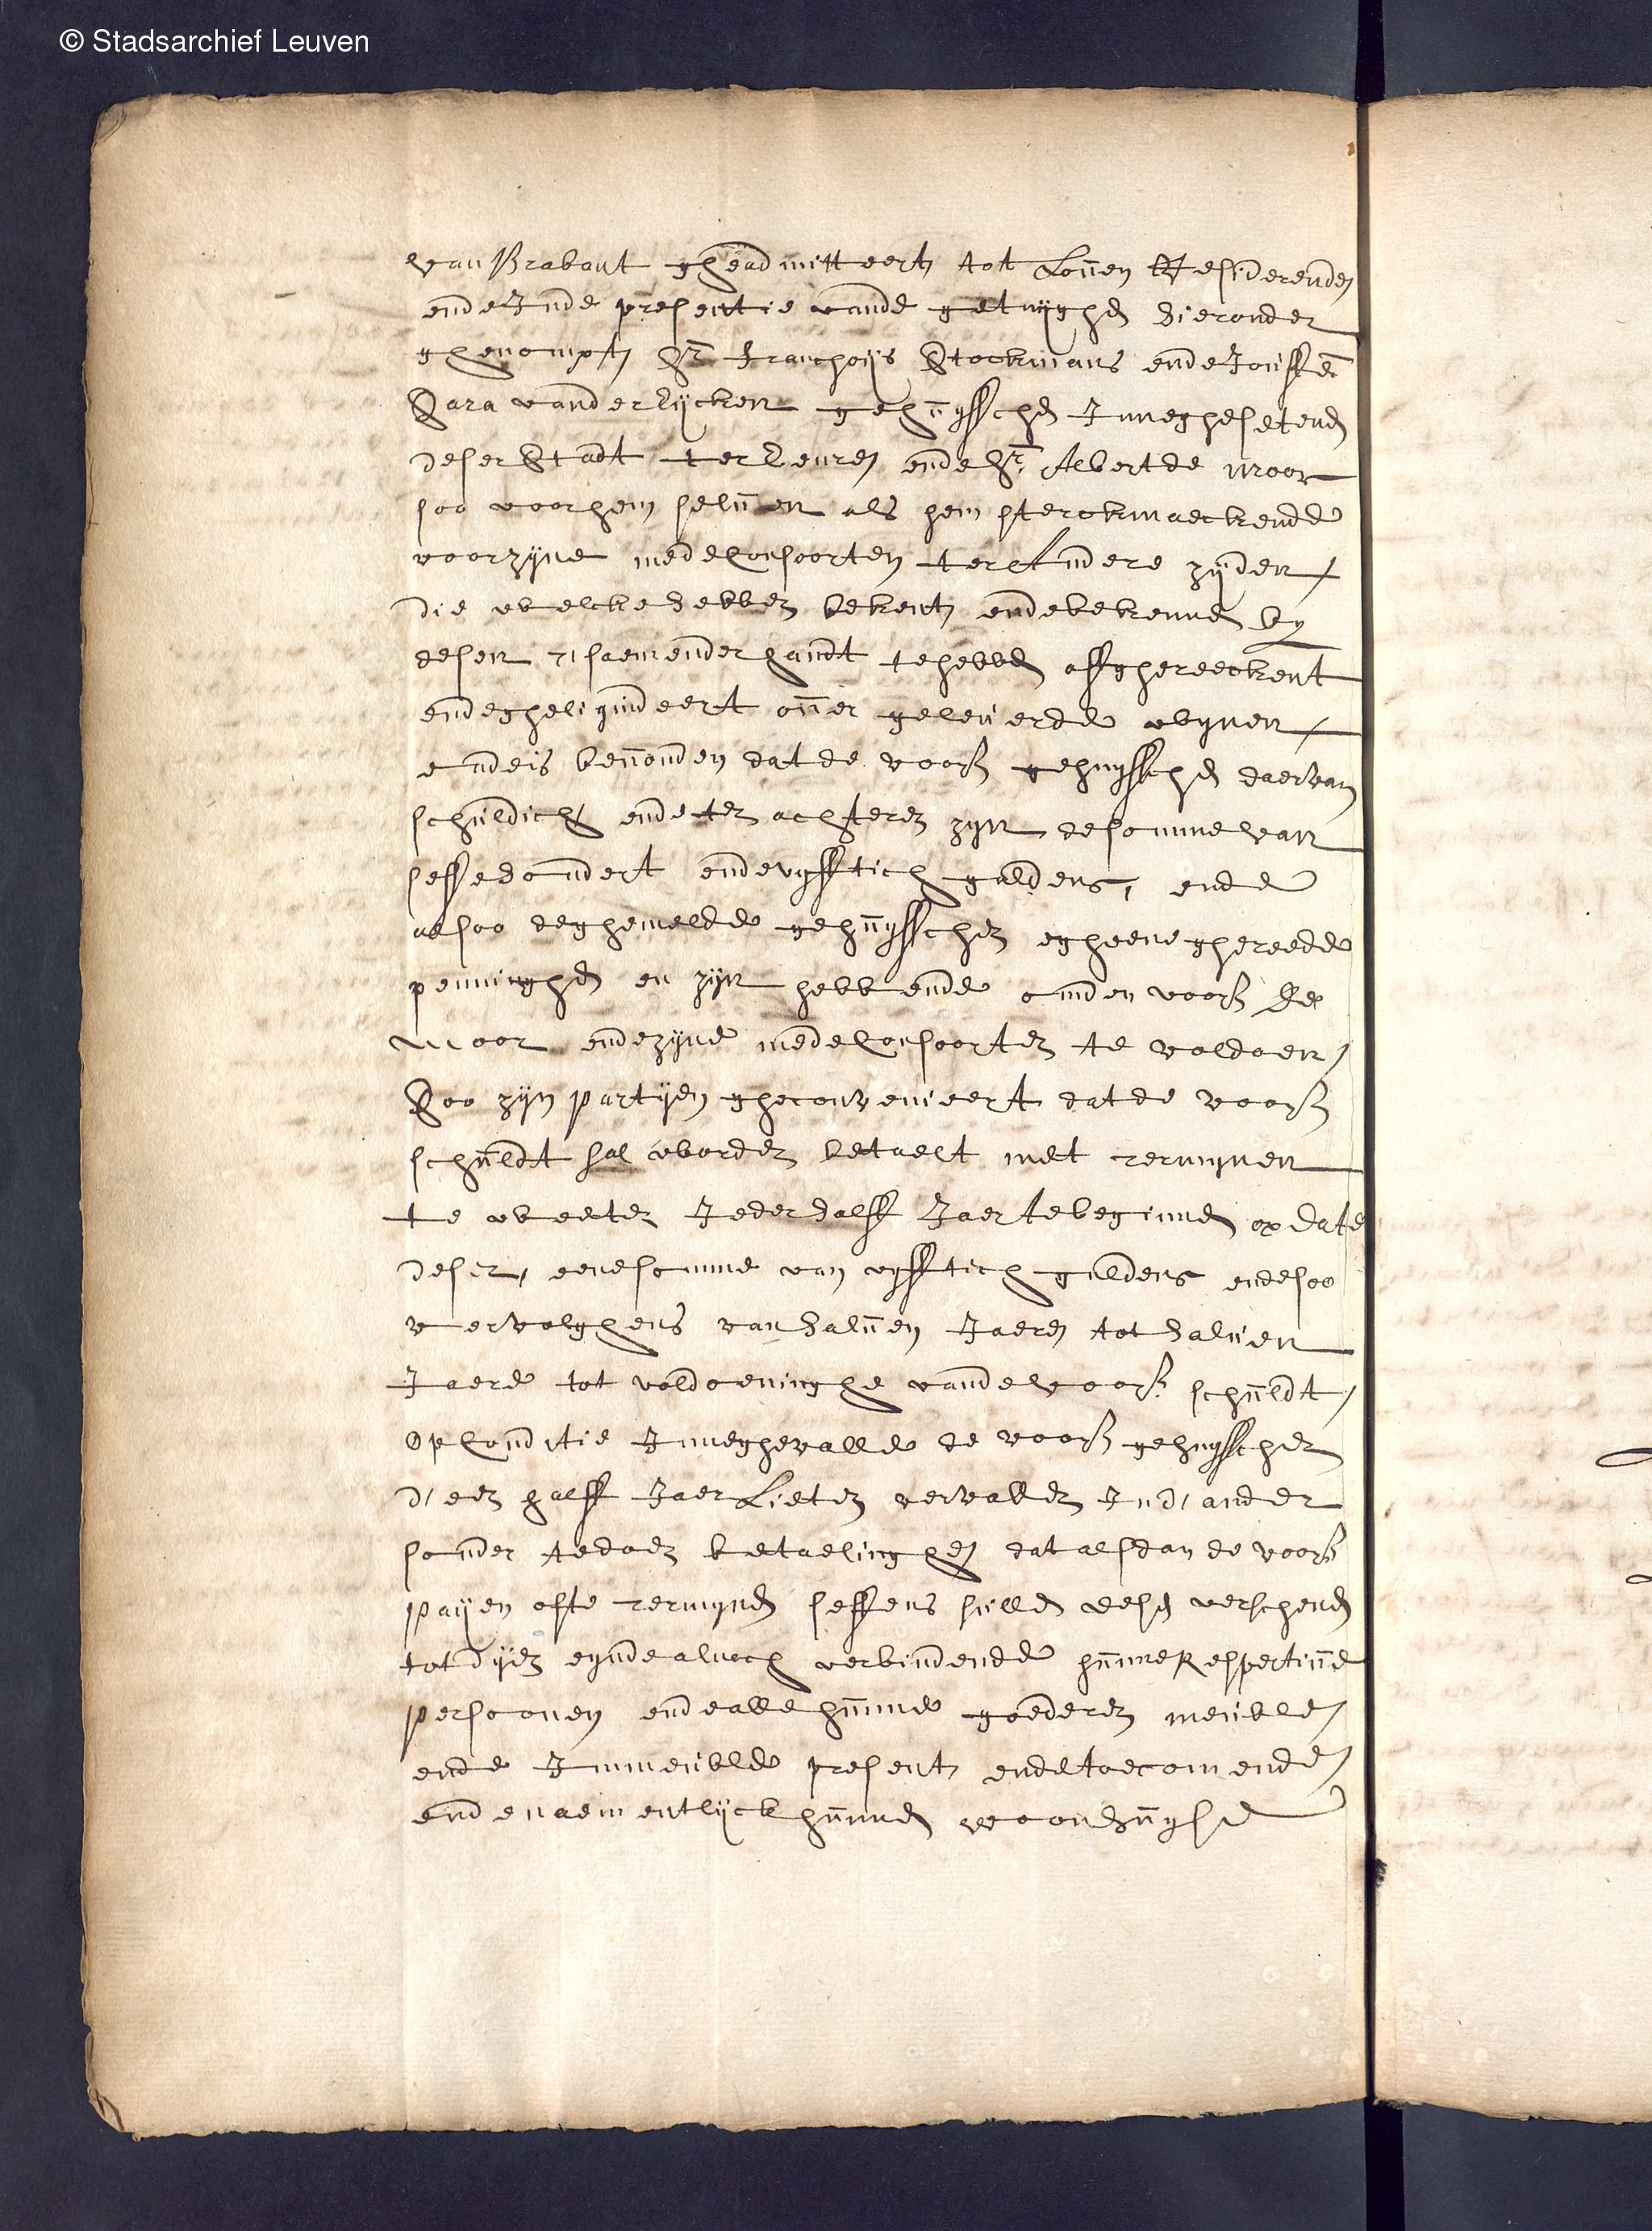 © Stadsarchief Leuven
van Brabant gheadmitteert tot Loven Residerende
ende Inde presentie vande getuyghen hieronder
ghenompt Sr Franchoys Stockmans ende Jouffe
Sara vander Eycken gehuysschen Inneghesetene
deser Stadt ter Eenre ende Sr Albert de Moor
soo voor hem selven als hem sterckmaeckende
voor zyne medeconsoorten ter Andere zyden /
die welcke hebben bekent ende bekennen by
desen tsaemenderhandt te hebben affghereeckent
ende gheliquideert over geleverde wynen /
ende is bevonden dat de voors gehuysschen daervan
schuldich ende ten achteren zyn de somme van
sesse hondert ende vyfftich guldens, ende
alsoo de ghemelde gehuysschen egheene ghereede
penninghen en zyn hebbende om den voors De
Moor ende zyne medeconsoorten te voldoen /
Soo zyn partyen gheconvenieert dat de voors
schuldt sal worden betaelt met termynen
te weeten Ieder halff Jaer te beginnen op date
deser, eene somme van vyfftich guldens ende soo
vervolghens van halven Jaere tot halven
Jaere tot voldoeninghe vande voors schuldt /
Op Conditie Inneghevalle de voors gehuysschen
d'een halff Jaer Lieten vervallen In d'ander
sonder te doen betaelinghe dat alsdan de voors
payen ofte termynen seffens sullen wesen verschenen
tot dyen eynde alnoch verbindende hunne Respective
persoonen ende alle hunne goederen meuble /
ende Immeuble present ende toecomende /
ende naementlyck hunnen woonhuyse